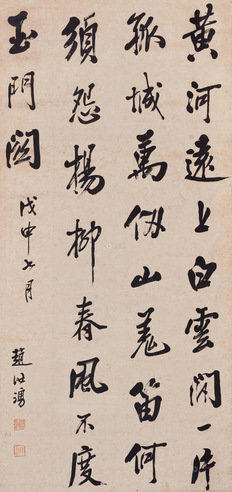 黃河遠上白雲間一片
孤城萬仞山羌笛何
須怨楊柳春風不度
玉門關
戊申七月
趙